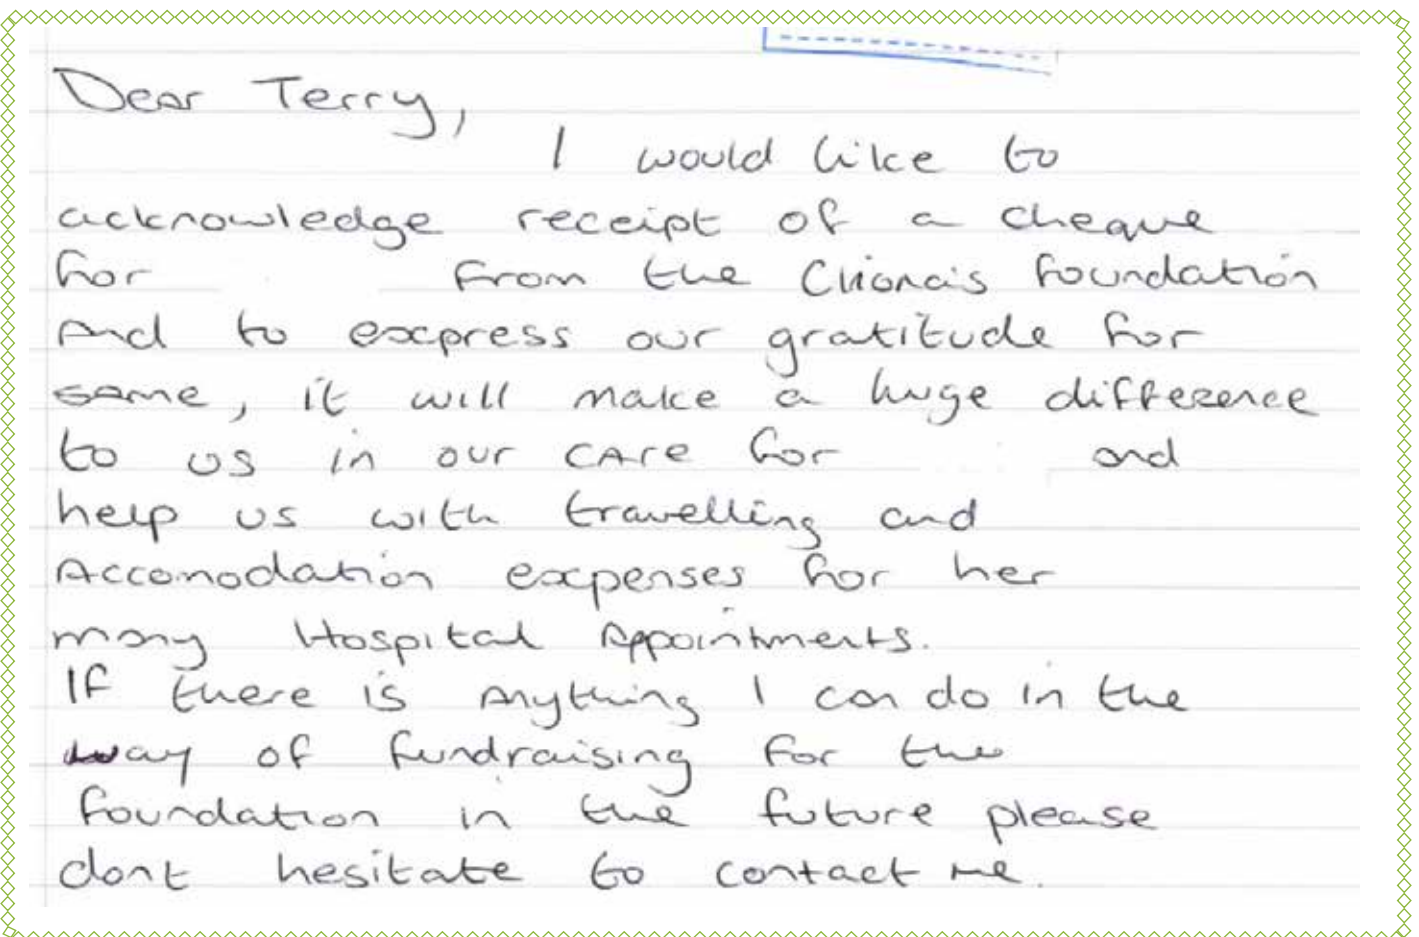 Dear Terry,
I would like to
acknowledge receipt of a cheque
for from the Cliona's foundation
And to express our gratitude for
same, it will make a huge difference
to us in our care for and
help us with travelling and
Accomodation expenses for her
many Hospital Appointments.
If there is anything I can do in the
way of fundraising for the
foundation in the future please
dont hesitate to contact me.